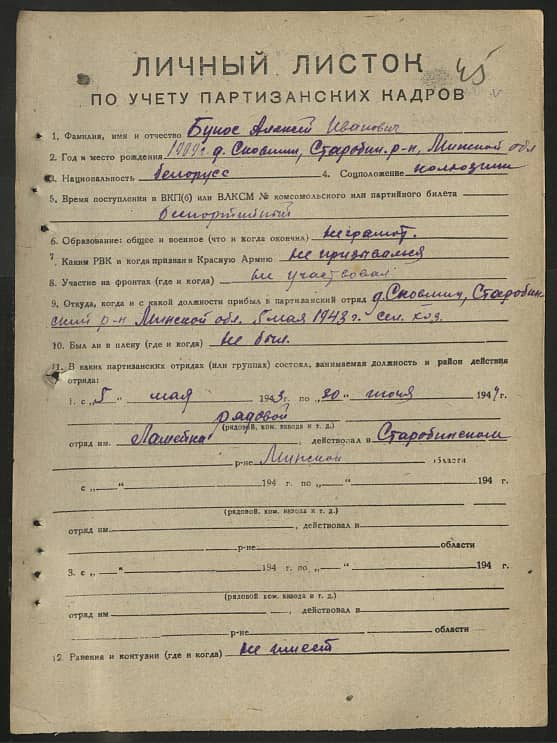 45
ЛИЧНЫЙ ЛИСТОК
ПО УЧЕТУ ПАРТИЗАНСКИХ КАДРОВ
1. Фамилия, имя и отчество Бунос Алексей Иванович
2. Год и место рождения д. Сковшин, Старобин. р-н, Минской обл
3. Национальность белорусс 4. Соцположение колхозник
5. Время поступления в ВКП(б) или ВЛКСМ № комсомольского или партийного билета
беспартийный
6. Образование: общее и военное (что и когда окончил) неграмот.
7. Каким РВК и когда призван в Красную Армию не призывался
8. Участие на фронтах (где и когда) не участвовал
9. Откуда, когда и с какой должности прибыл в партизанский отряд д. Сковшин, Старобин
ский р-н Минской обл. 5 мая 1943 г. сел. хоз.
10. Был ли в плену (где и когда) не был.
11. В каких партизанских отрядах (или группах) состоял, занимаемая должность и район действия
отряда:
1. с „5“ мая 1943 г. по „20“ июня 1944 г.
рядовой
(рядовой, ком. взвода и т. д.)
отряд им. , действовал в Старобинском
р-не Минской области
с „ “ 194 г. по „ “ 194 г.
(рядовой, ком. взвода и т. д.)
отряд им. , действовал в
р-не области
3. с „ “ 194 г. по „ “ 194 г.
(рядовой, ком. взвода и т. д.)
отряд им. , действовал в
р-не области
12. Ранения и контузии (где и когда) не имеет